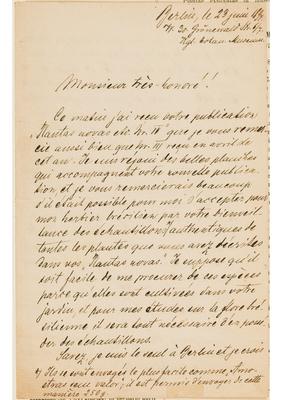 Berlin, le 23 juin
W. 30 Grünewald Str. 6/7
Kgl. botan. Museum.
Monsieur très-honoré!
Ce matin j'ai reçu votre publication
Plantas novas etc. Nr. IV que je vous remer-
cie aussi bien que Nr. III reçu en avril de
cet an. Je me rejoui des belles planches
qui accompagnent votre nouvelle publica-
tion, et je vous remercierais beaucoup
s'il était possible pour moi d'accepter pour
mon herbier brésilien par votre bienveil-
lance des échantillons authentiques de
toutes les plantes que vous avez décrites
dans vos "Plantas novas". Je suppose qu'il
soit facile de me procurer de ces espèces
parce qu'elles sont cultivées dans votre
jardin, et pour mes études sur la flore bré-
silienne il sera tout nécessaire de possé-
der des échantillons.
Savez, je suis le seul à Berlin et je crois
Ils se sont envoyés le plus facile comme "Amo-
stras sem valor"; il est permis d'envoyer de cette
manière 250 g.